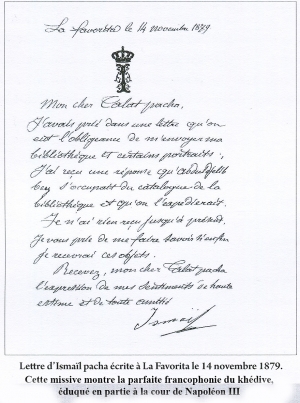 La Favorita le 14 novembre 1879
Mon cher Talat pacha,
J'avais prié dans une lettre qu'on
eût l'obligeance de m'envoyer ma
bibliothèque et certains portraits ;
J'ai reçu une réponse qu'Abduldjelil
bey s'occupait du catalogue de la
bibliothèque et qu'on l'expédierait.
Je n'ai rien reçu jusqu'à présent.
Je vous prie de me faire savoir si enfin
je recevrai ces objets.
Recevez, mon cher Talat pacha
l'expression de mes sentiments de haute
estime et de toute amitié
Ismaïl
Lettre d'Ismaïl pacha écrite à La Favorita le 14 novembre 1879.
Cette missive montre la parfaite francophonie du khédive,
éduqué en partie à la cour de Napoléon III